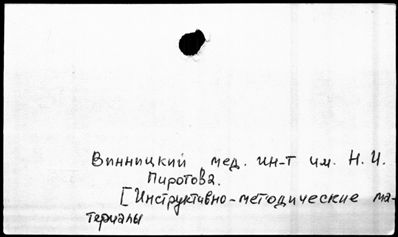 Винницкий мед. ин-т им. Н. И.
Пиротова.
[Инструктивно-методические ма-
териалы